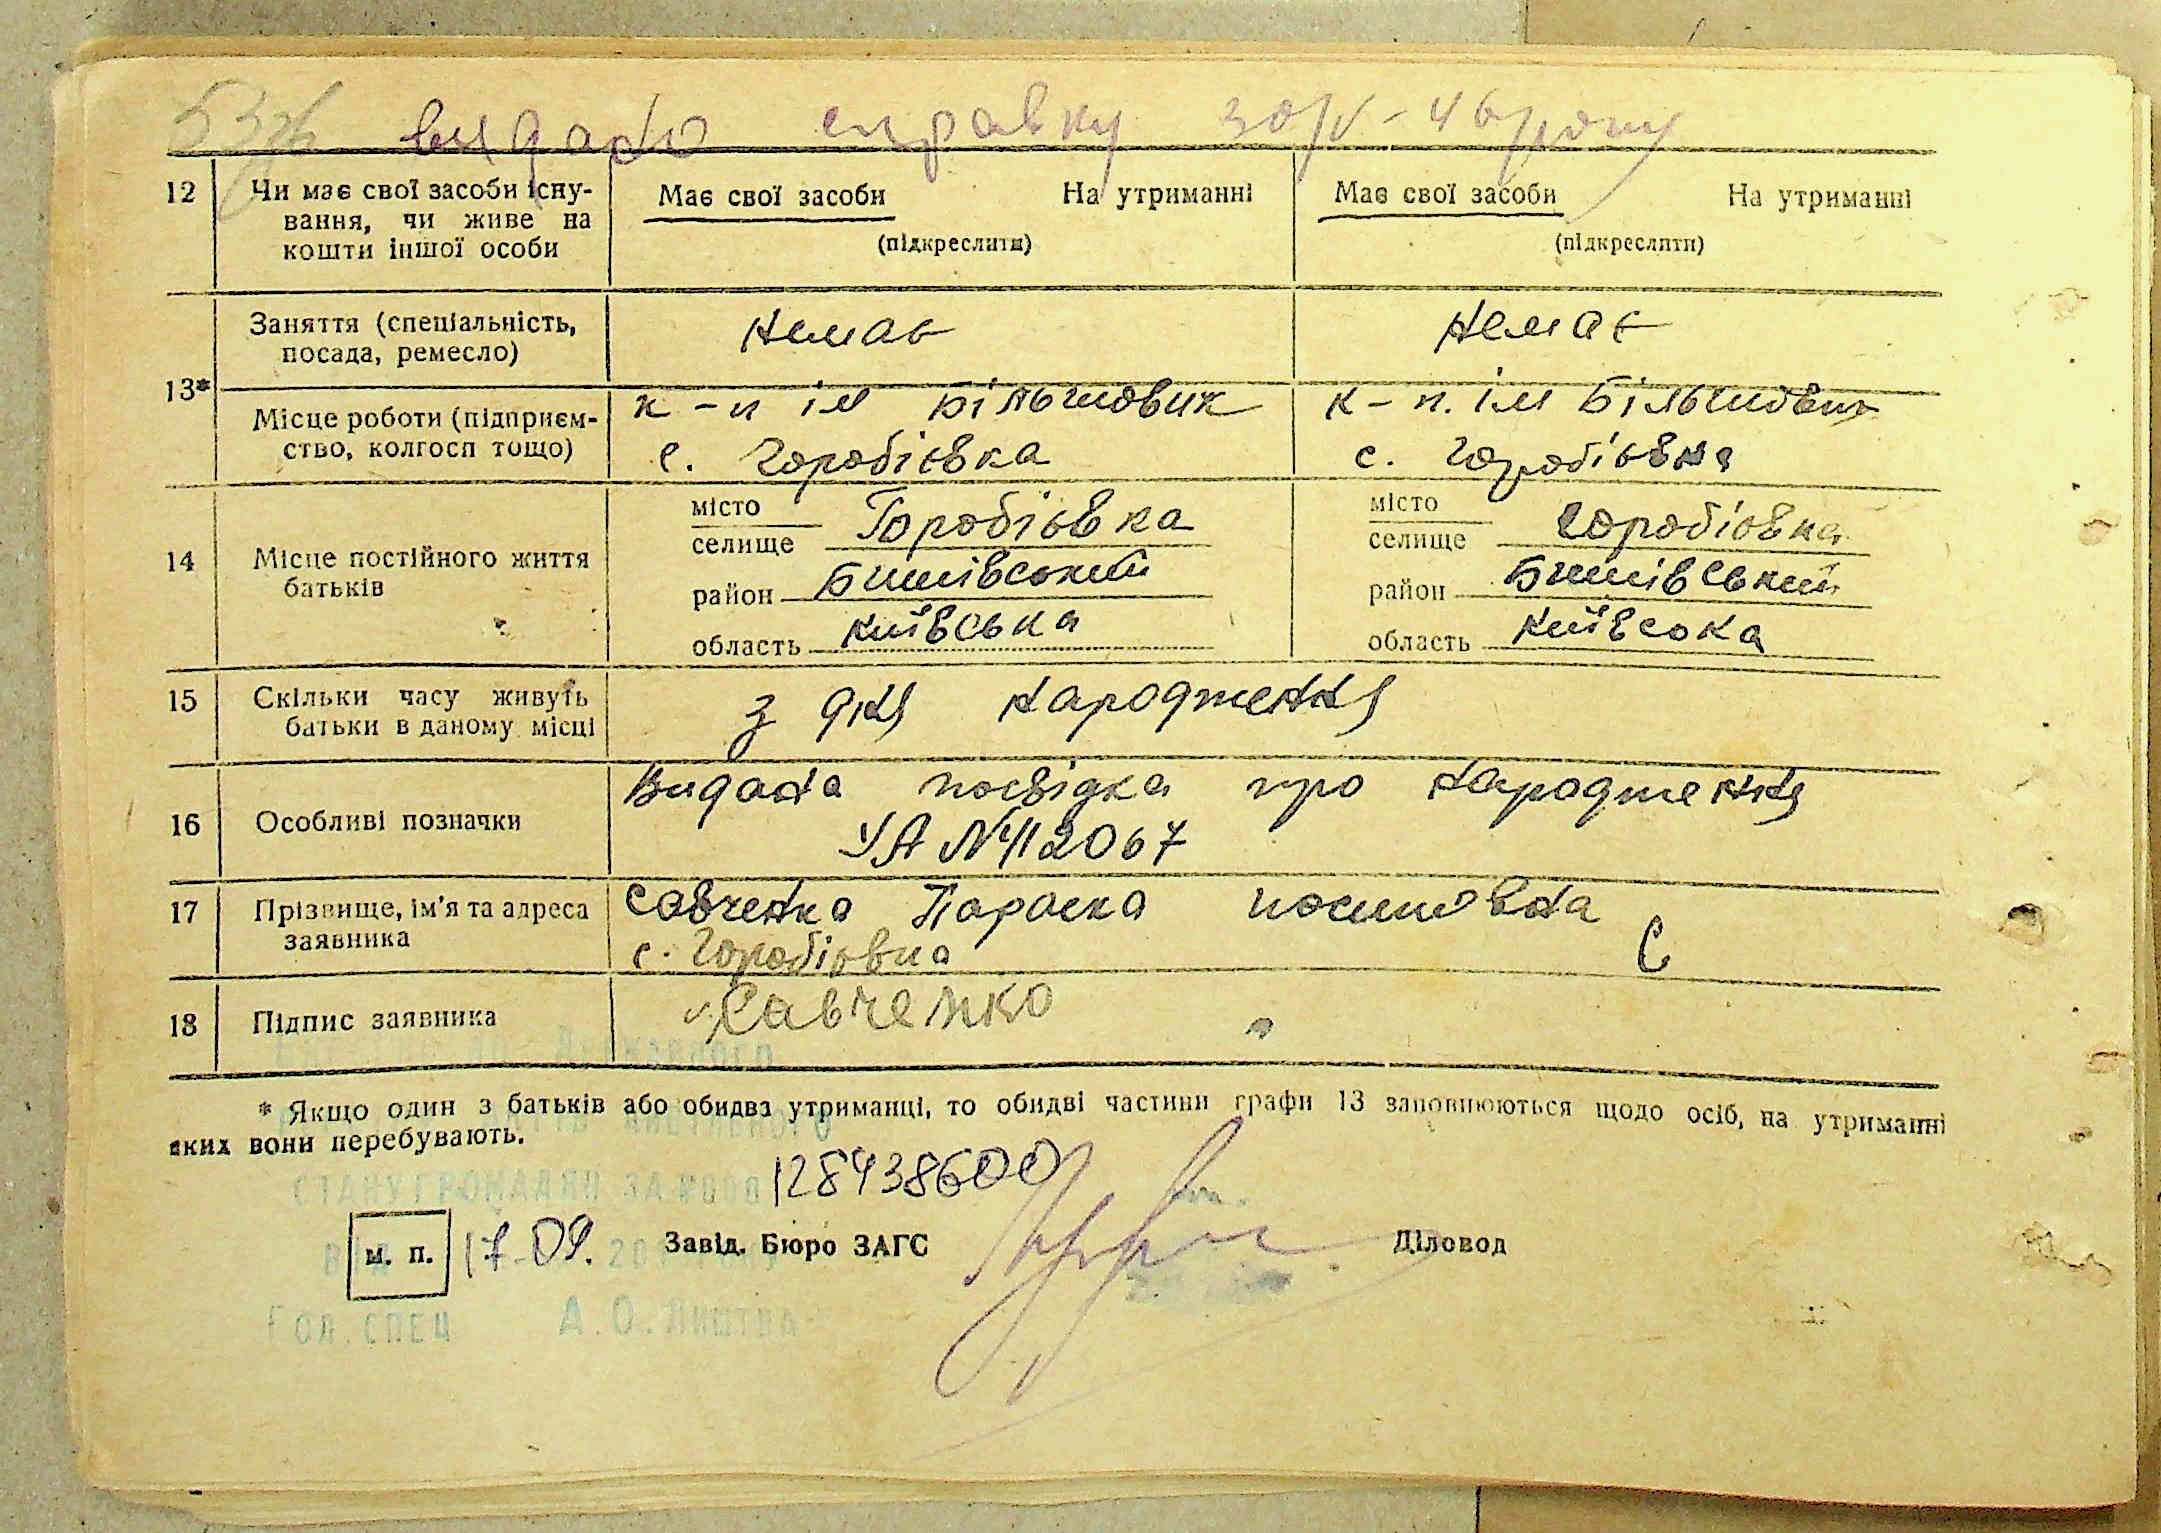 видано справку 30/V-46 року
12 Чи має свої засоби існу- Має свої засоби На утриманні Має свої засоби На утриманні
вання, чи живе на (підкреслити) (підкреслити)
кошти іншої особи
13* Заняття (спеціальність, Немає Немає
посада, ремесло)
Місце роботи (підприєм- к-п ім Більшовик к-п. ім Більшовик
ство, колгосп тощо) с. Горобіївка с. Горобіївка
14 Місце постійного життя батьків
місто Горобіївка місто Горобіївка
селище селище
район Бишівський район Бишівський
область київська область київська
15 Скільки часу живуть з дня народження
батьки в даному місці
16 Особливі позначки Видана посвідка про народження
УА № 412067
17 Прізвище, ім'я та адреса Савченко Параска
заявника с. Горобіївка
18 Підпис заявника Савченко
* Якщо один з батьків або обидва утриманці, то обидві частини графи 13 заповнюються щодо осіб, на утриманні
яких вони перебувають.
СТАНУ ГРОМАДЯН ЗА 12843860
м. п. 17.09. Завід. Бюро ЗАГС Діловод
Гол. спец А. О. Лиштва